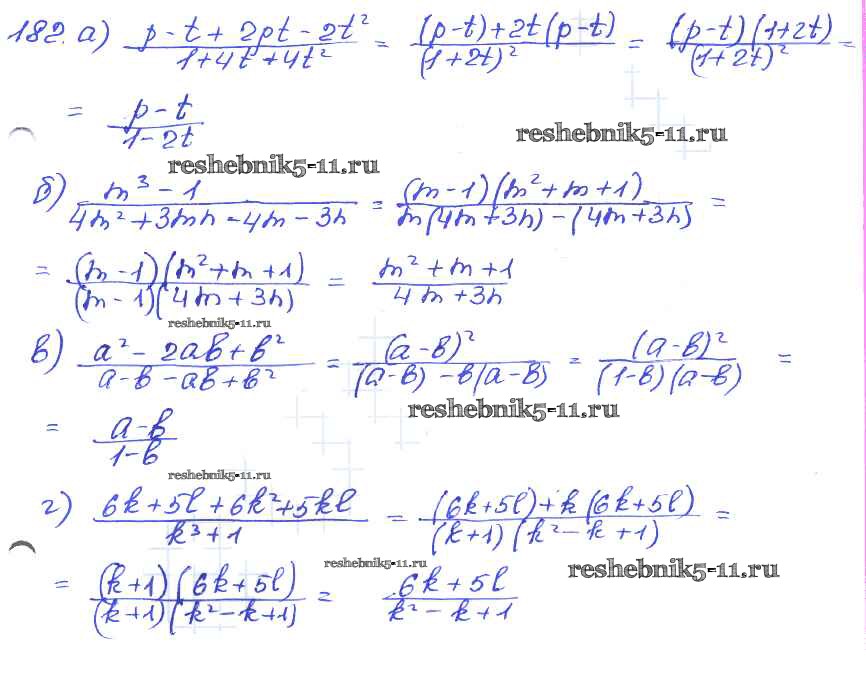 182. а) (p-t+2pt-2t²)/(1+4t+4t²) = ((p-t)+2t(p-t))/(1+2t)² = ((p-t)(1+2t))/(1+2t)² =
= (p-t)/(1-2t)
reshebnik5-11.ru
reshebnik5-11.ru
б) (m³-1)/(4m²+3mn-4m-3n) = ((m-1)(m²+m+1))/(m(4m+3n)-(4m+3n)) =
= ((m-1)(m²+m+1))/((m-1)(4m+3n)) = (m²+m+1)/(4m+3n)
reshebnik5-11.ru
в) (a²-2aв+в²)/(a-в-aв+в²) = (a-в)²/((a-в)-в(a-в)) = (a-в)²/((1-в)(a-в)) =
reshebnik5-11.ru
= (a-в)/(1-в)
reshebnik5-11.ru
г) (6k+5l+6k²+5kl)/(k³+1) = ((6k+5l)+k(6k+5l))/((k+1)(k²-k+1)) =
reshebnik5-11.ru
reshebnik5-11.ru
= ((k+1)(6k+5l))/((k+1)(k²-k+1)) = (6k+5l)/(k²-k+1)